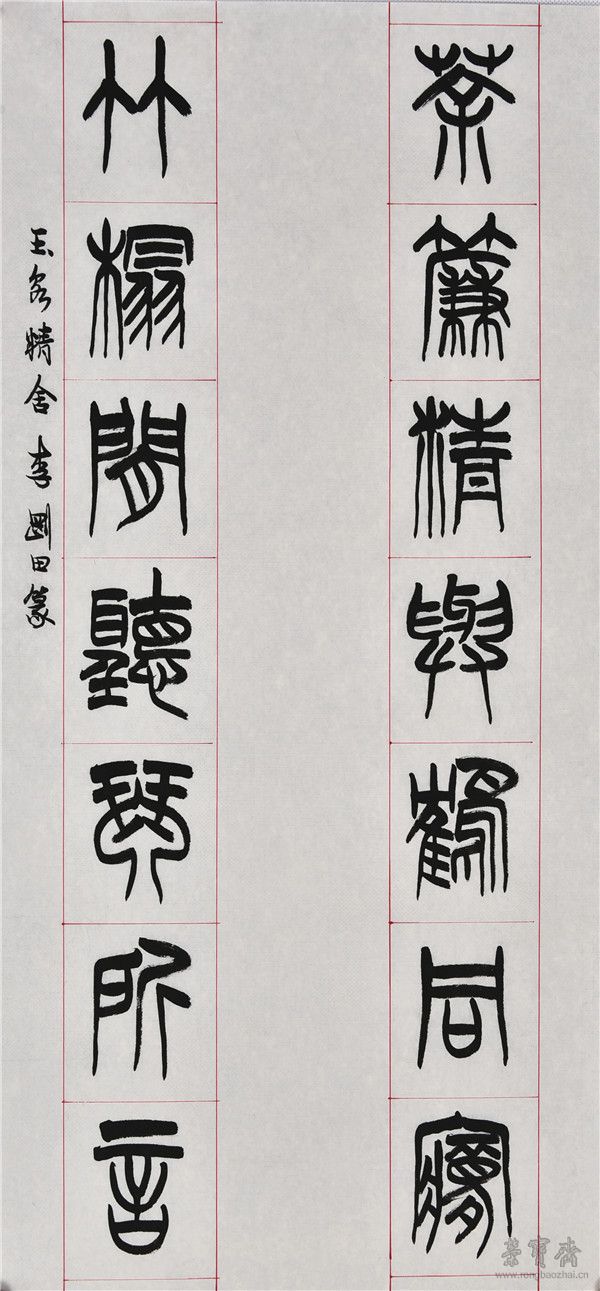 茶簾清與鶴同夢
竹榻閒聽琴所言
精舍李剛田篆
榮寶齋
www.rongbaozhai.cn